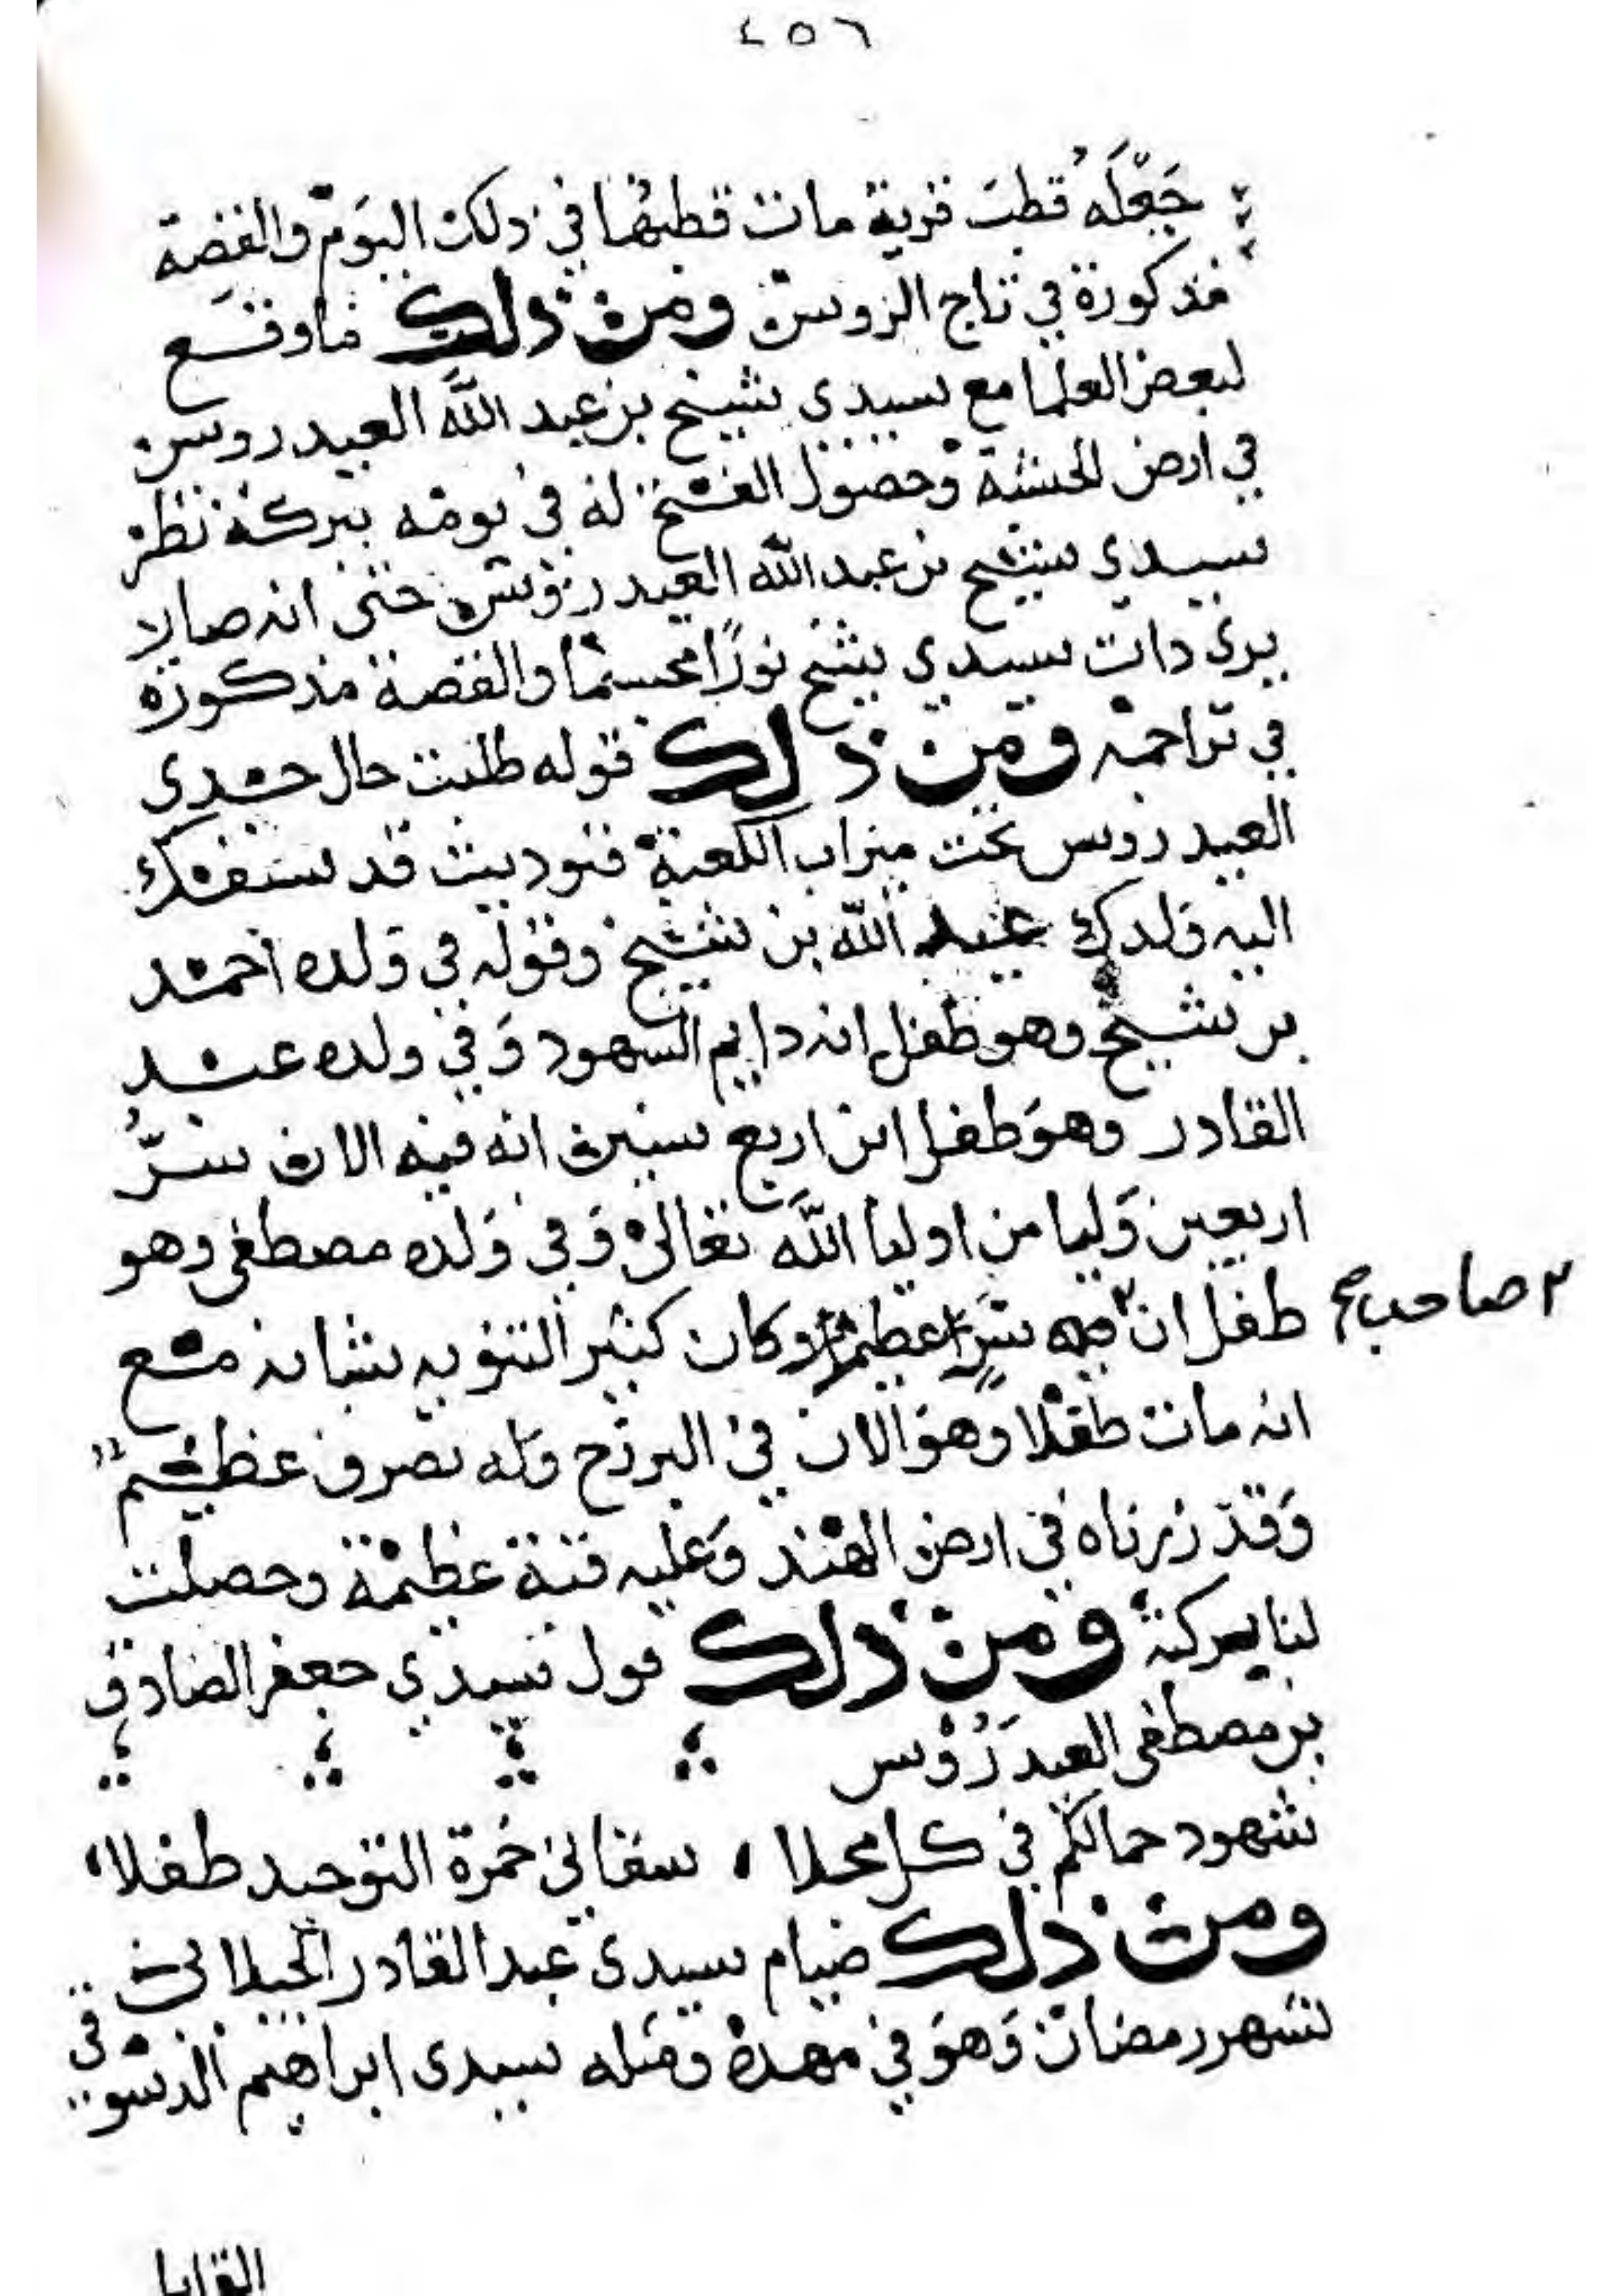 ٤٥٦
جعله قطب قرية مات قطبها في ذلك اليوم والقصة
مذكورة في تاج الروس ومن ذلك ما وقع
لبعض العلما مع سيدي شيخ بن عبد الله العيدروس
في ارض الحبشة وحصول الفتح له في يومه ببركة نظر
سيدي شيخ بن عبد الله العيدروس حتى انه صار لا
يرى ذات سيدي شيخ نورًا مجسما والقصة مذكورة
في تراجمه ومن ذلك قوله طلبت حال جدي
العيدروس تحت ميزاب الكعبة فنوديت قد سبقك
اليه ولدك عبد الله بن شيخ وقوله في ولده احمد
بن شيخ وهو طفل انه دايم الشهود وفي ولده عبد
القادر وهو طفل ابن اربع سنين انه فيه الان سرُّ
اربعين وليا من اوليا الله تعالى وفي ولده مصطفى وهو
طفل ان فيه سر عظيم وكان كثير التنويه بشانه مع
٢ صاحب صح
انه مات طفلا وهو الان في البرزح وله تصرف عظيم
وقد زرناه في ارض الهند وعليه قبة عظيمة وحصلت
لنا بركته ومن ذلك قول سيدي جعفر الصادق
بن مصطفى العيدروس
شهود جمالكم في كل مجلا ، سقاني خمرة التوحيد طفلا ،
ومن ذلك صيام سيدي عبد القادر الجيلاني
لشهر رمضان وهو في مهده ومثله سيدي ابراهيم الدسوقي